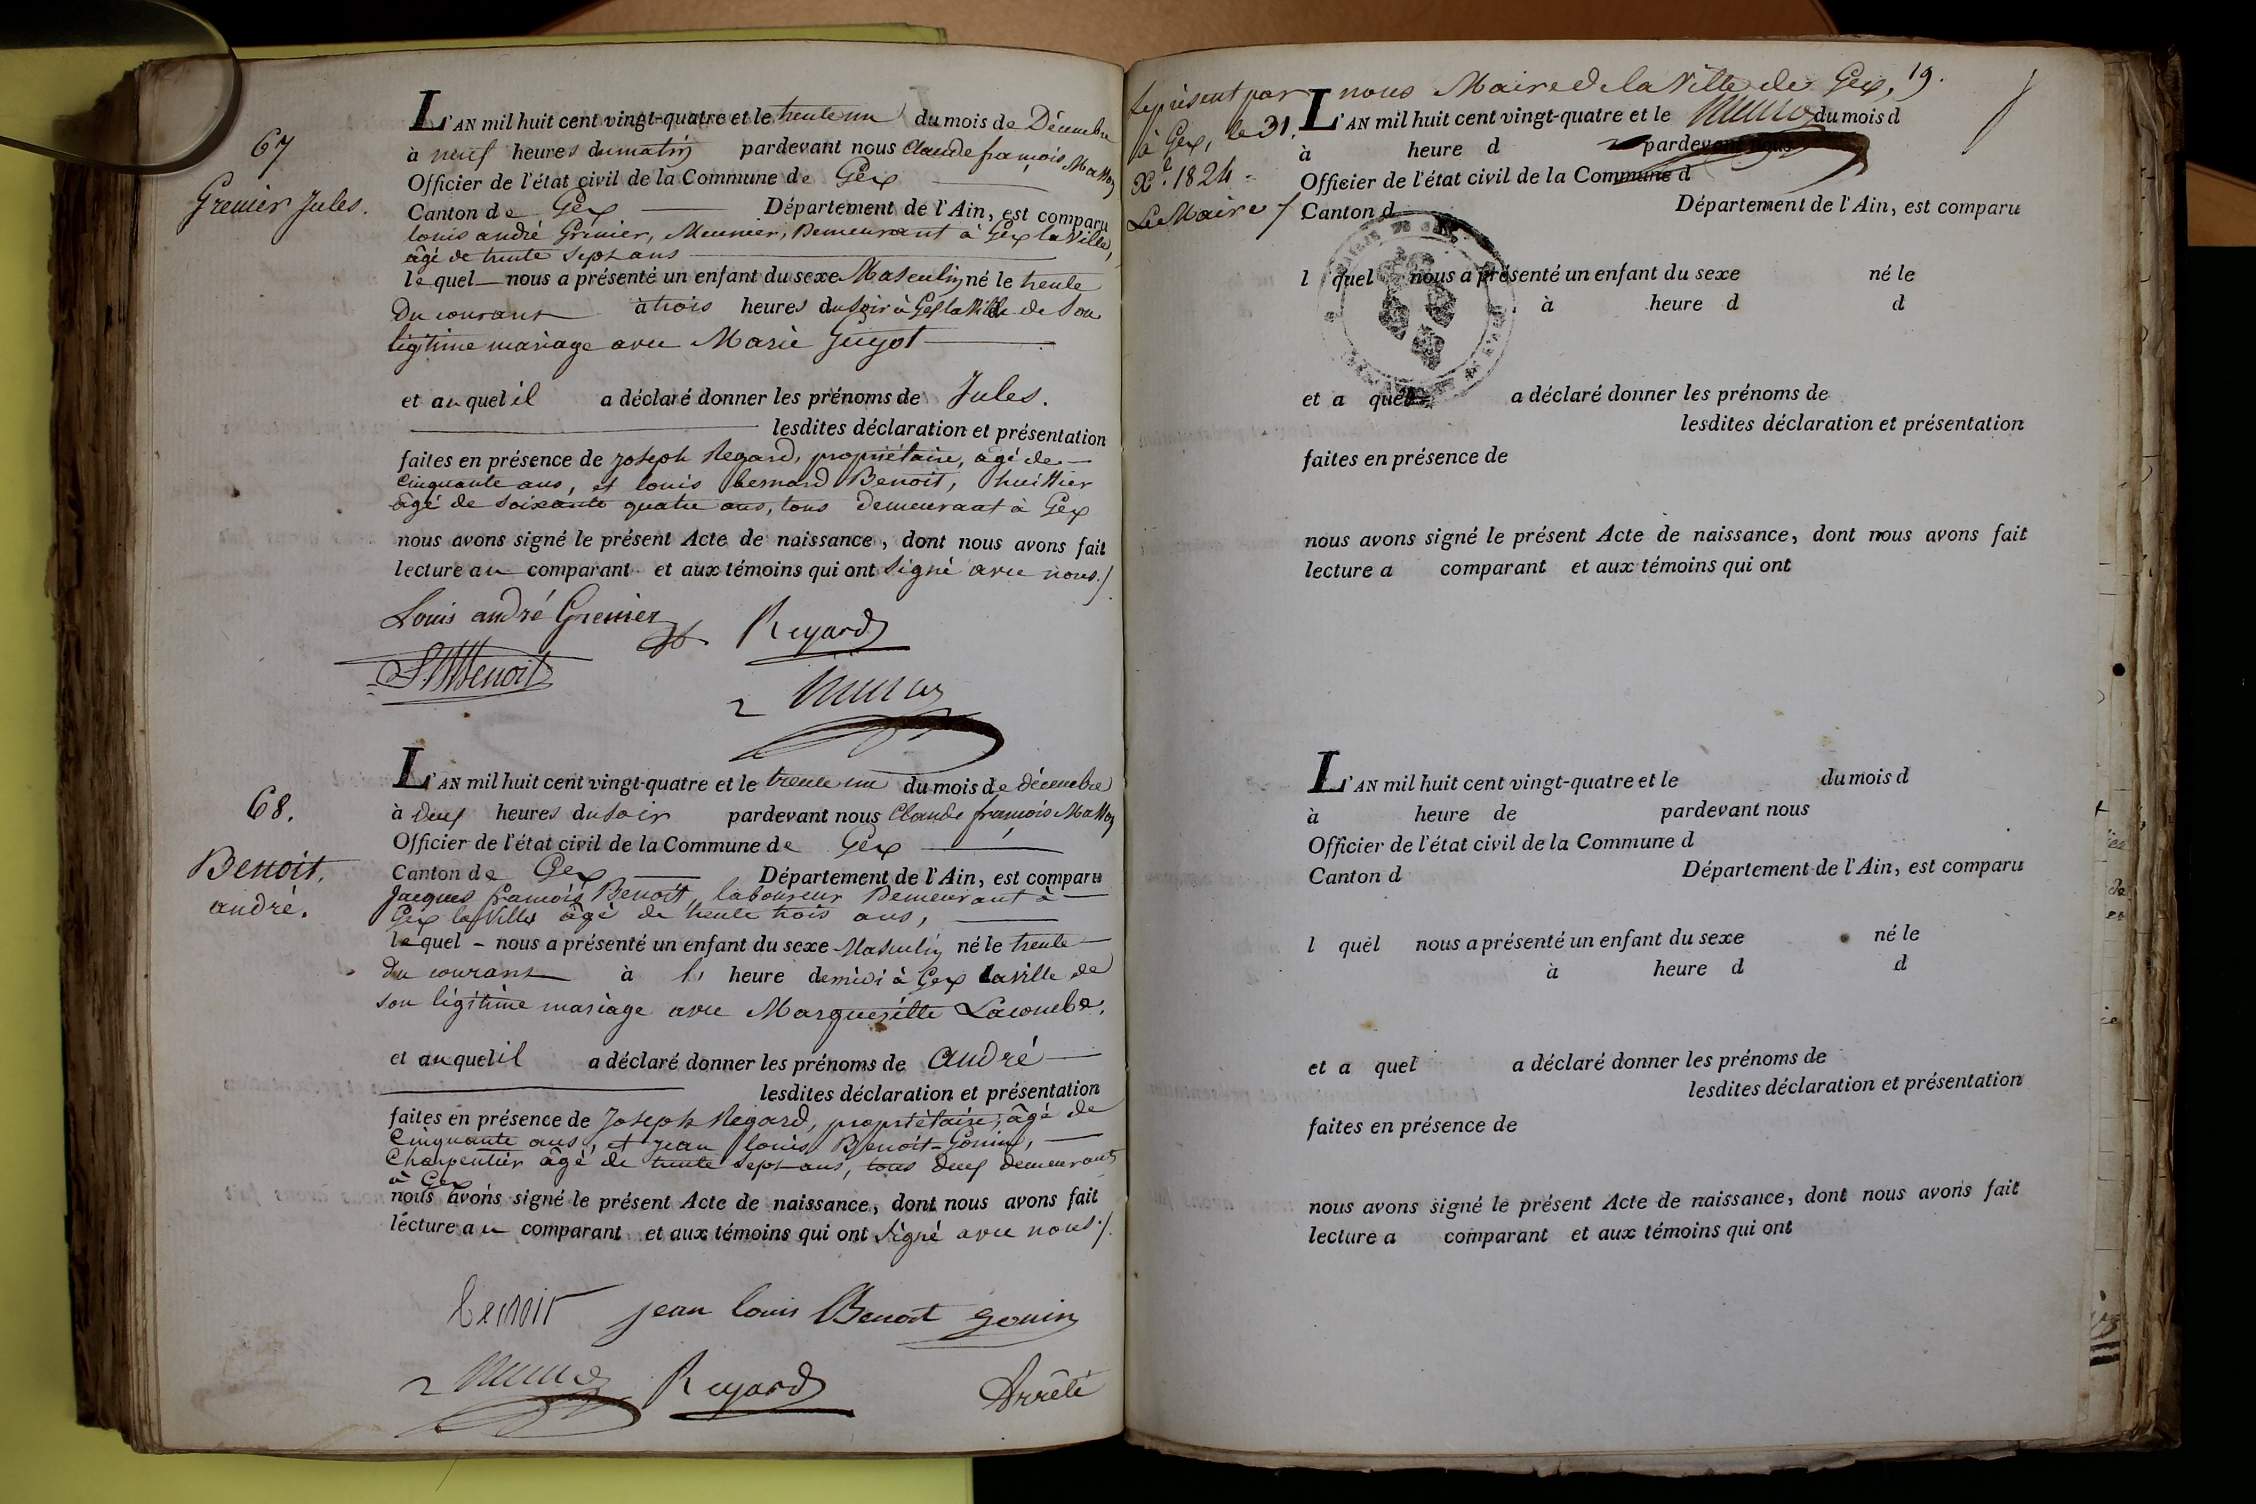 67
Grenier Jules.
L'AN mil huit cent vingt-quatre et le trente un du mois de Décembre
à neuf heures du matin pardevant nous Claude françois
Officier de l'état civil de la Commune de Gex
Canton de Gex Département de l'Ain, est comparu
louis andré Grenier, Meunier, Demeurant à Gex la Ville,
âgé de trente sept ans
lequel nous a présenté un enfant du sexe Masculin né le trente
Du courant à trois heures du soir à Gex la Ville de Son
légitime mariage avec Marie Guyot
et auquel il a déclaré donner les prénoms de Jules.
lesdites déclaration et présentation
faites en présence de Joseph Regard, propriétaire, agé de
Cinquante ans, et louis bernard Benoit, huissier
âgé de soixante quatre ans, tous demeurant à Gex
nous avons signé le présent Acte de naissance, dont nous avons fait
lecture au comparant et aux témoins qui ont signé avec nous./.
Louis andré Grenier
Regard
Benoit
68.
Benoit.
andré.
L'AN mil huit cent vingt-quatre et le trente un du mois de décembre
à deux heures du soir pardevant nous Claude françois
Officier de l'état civil de la Commune de Gex
Canton de Gex Département de l'Ain, est comparu
Jacques françois Benoit, laboureur Demeurant à
Gex la Ville âgé de trente trois ans,
lequel nous a présenté un enfant du sexe Masculin né le trente
Du courant à l' heure de midi à Gex la ville de
son légitime mariage avec Margueritte Lacombe,
et auquel il a déclaré donner les prénoms de André
lesdites déclaration et présentation
faites en présence de Joseph Regard, propriétaire, âgé de
Cinquante ans, et Jean louis Benoit-Gonin,
Charpentier âgé de trente sept ans, tous deux demeurant
à Gex
nous avons signé le présent Acte de naissance, dont nous avons fait
lecture au comparant et aux témoins qui ont signé avec nous./.
benoit jean louis Benoit gonin
Regard Arrêté
Le présent par nous Maire de la Ville de Gex, 19.
à Gex, le 31.
Xe. 1824.
Le Maire /
L'AN mil huit cent vingt-quatre et le du mois d
à heure d pardevant nous
Officier de l'état civil de la Commune d
Canton d Département de l'Ain, est comparu
l quel nous a présenté un enfant du sexe né le
à heure d d
et a quel a déclaré donner les prénoms de
lesdites déclaration et présentation
faites en présence de
nous avons signé le présent Acte de naissance, dont nous avons fait
lecture a comparant et aux témoins qui ont
L'AN mil huit cent vingt-quatre et le du mois d
à heure de pardevant nous
Officier de l'état civil de la Commune d
Canton d Département de l'Ain, est comparu
l quel nous a présenté un enfant du sexe né le
à heure d d
et a quel a déclaré donner les prénoms de
lesdites déclaration et présentation
faites en présence de
nous avons signé le présent Acte de naissance, dont nous avons fait
lecture a comparant et aux témoins qui ont